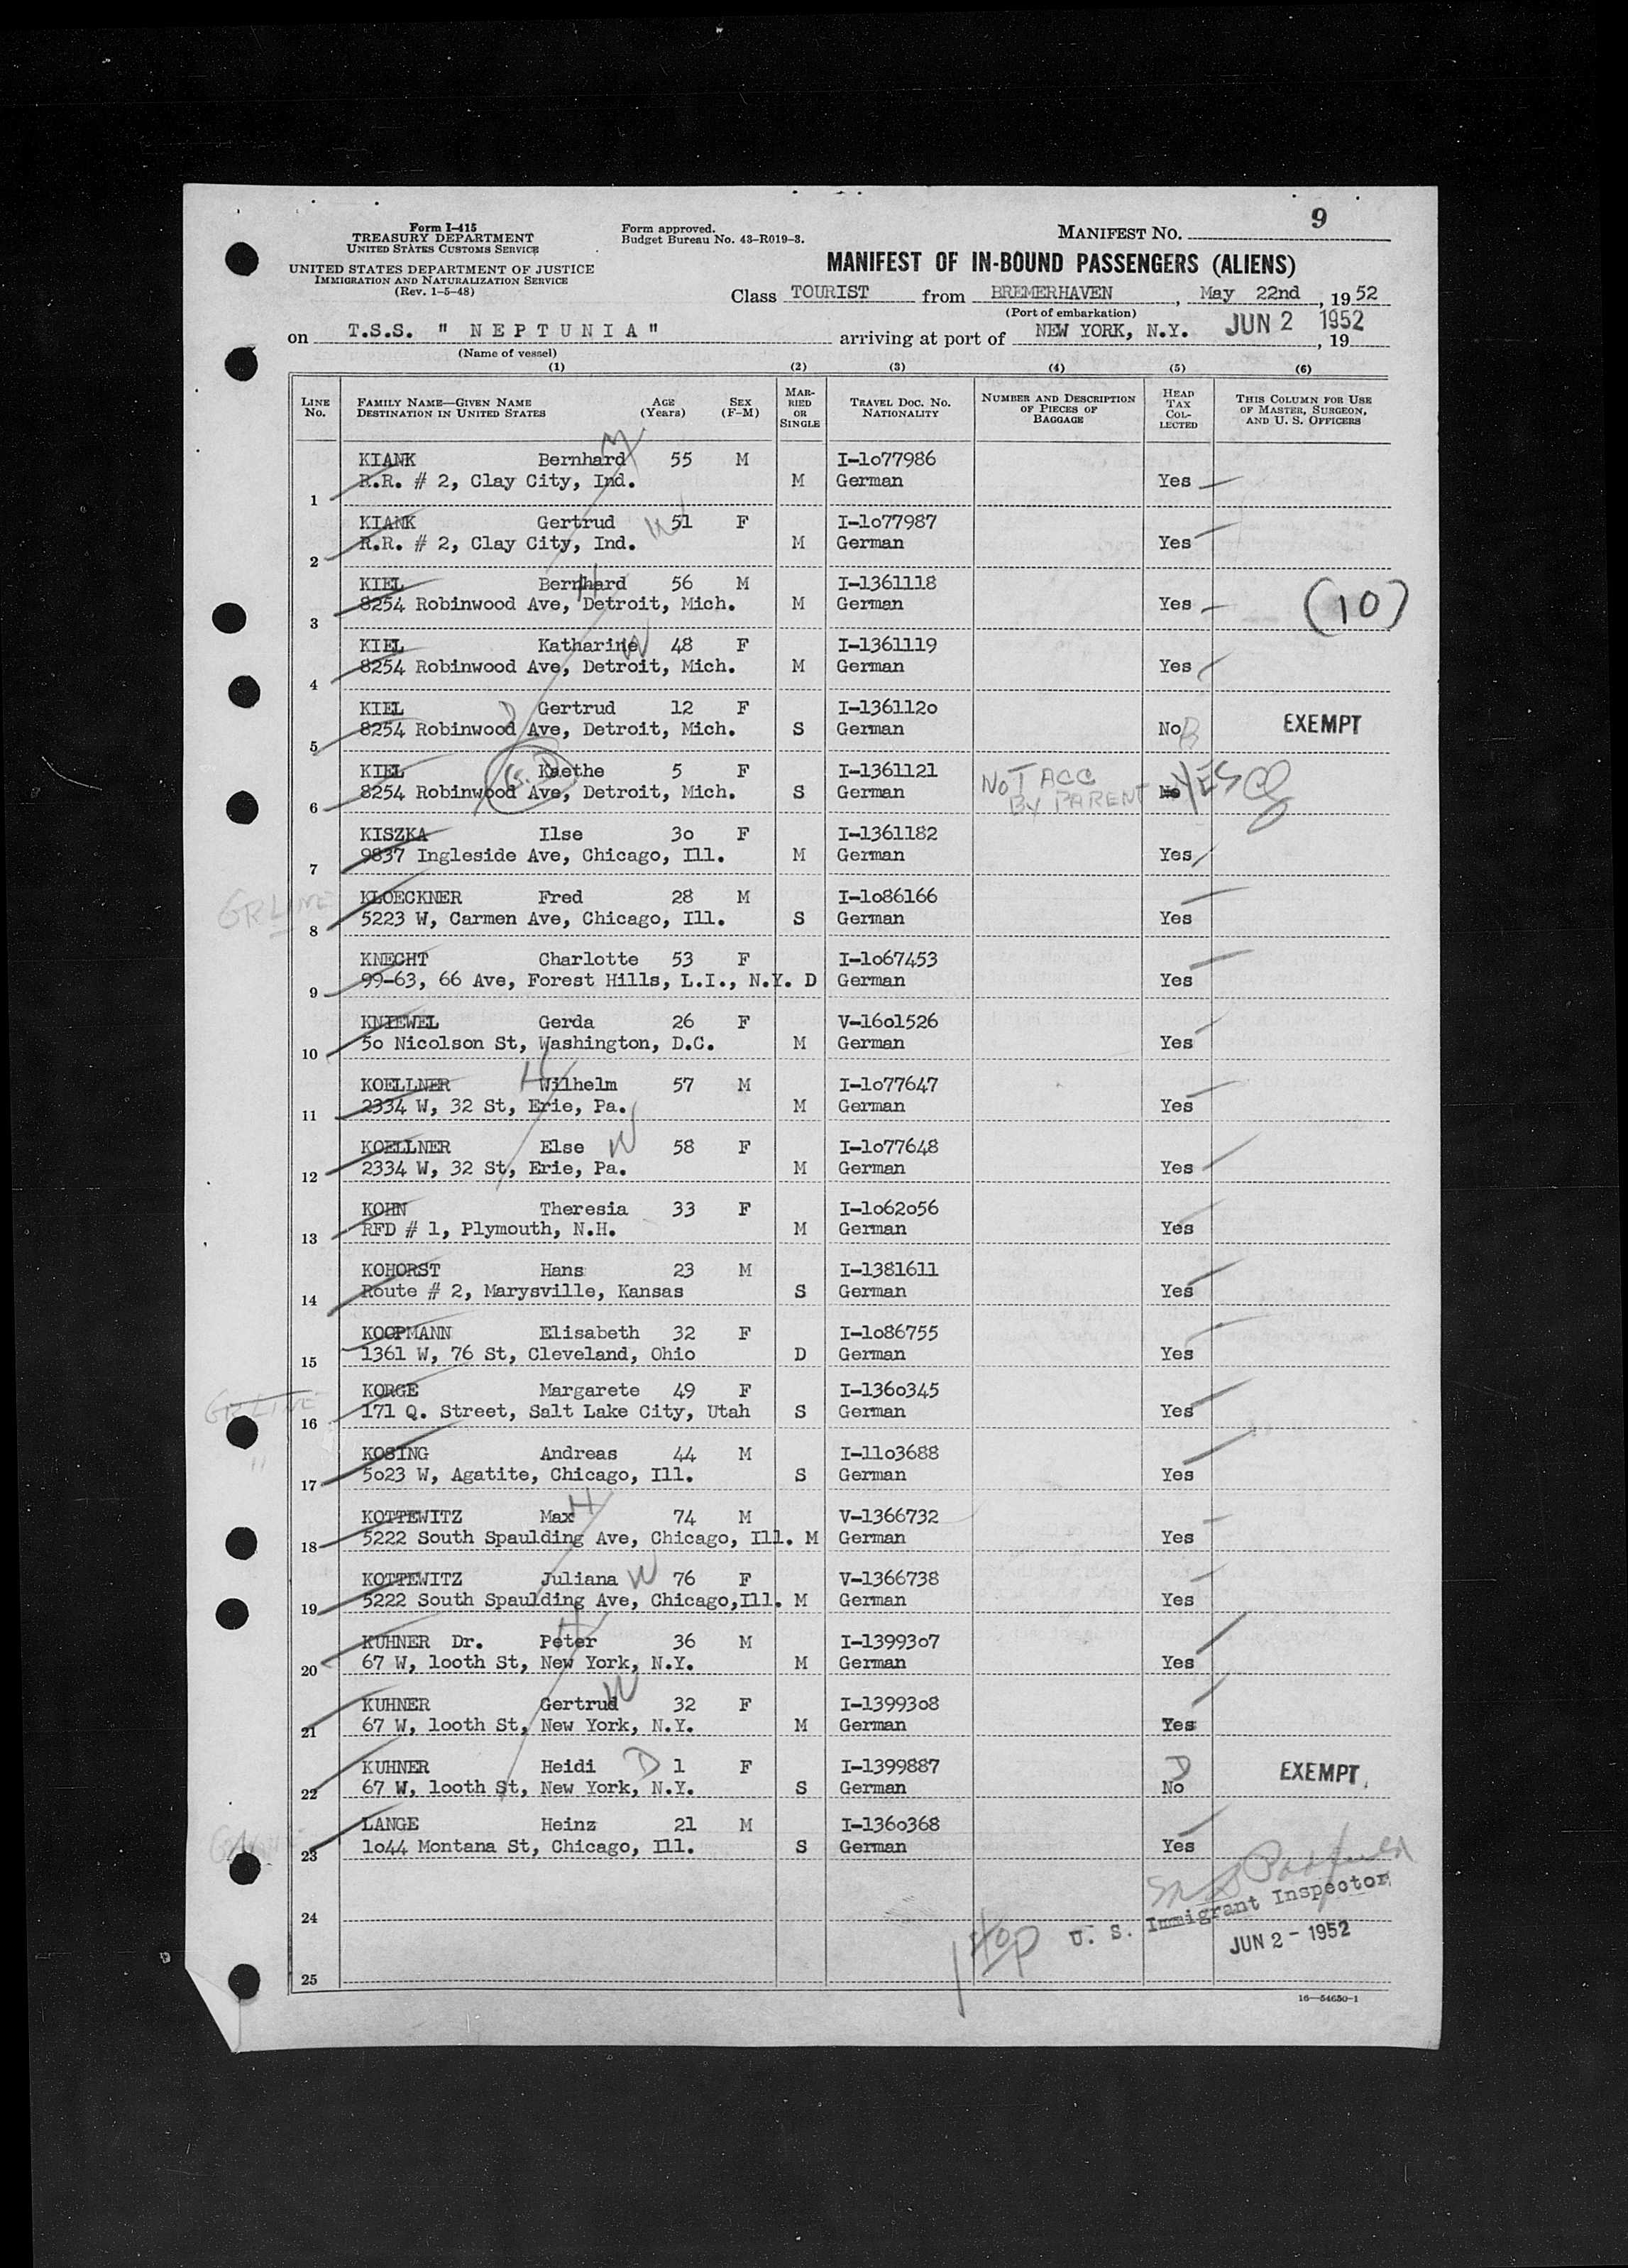 9
Form I-415
TREASURY DEPARTMENT
UNITED STATES CUSTOMS SERVICE
UNITED STATES DEPARTMENT OF JUSTICE
IMMIGRATION AND NATURALIZATION SERVICE
(Rev. 1-5-48)
Form approved.
Budget Bureau No. 43-R019-3.
MANIFEST NO.
MANIFEST OF IN-BOUND PASSENGERS (ALIENS)
Class TOURIST from BREMERHAVEN, May 22nd, 1952
(Port of embarkation)
on T.S.S. " N E P T U N I A " arriving at port of NEW YORK, N.Y. JUN 2 1952, 19
(Name of vessel)
(1) (2) (3) (4) (5) (6)
LINE NO. FAMILY NAME—GIVEN NAME DESTINATION IN UNITED STATES AGE (Years) SEX (F-M) MARRIED OR SINGLE TRAVEL DOC. NO. NATIONALITY NUMBER AND DESCRIPTION OF PIECES OF BAGGAGE HEAD TAX COLLECTED THIS COLUMN FOR USE OF MASTER, SURGEON, AND U. S. OFFICERS
KIANK Bernhard 55 M I-1o77986
1 R.R. # 2, Clay City, Ind. M German Yes
KIANK Gertrud W 51 F I-1o77987
2 R.R. # 2, Clay City, Ind. M German Yes
KIEL Bernhard H 56 M I-1361118
3 8254 Robinwood Ave, Detroit, Mich. M German Yes (10)
KIEL Katharine W 48 F I-1361119
4 8254 Robinwood Ave, Detroit, Mich. M German Yes
KIEL D Gertrud 12 F I-136112o
5 8254 Robinwood Ave, Detroit, Mich. S German No EXEMPT
KIEL Kaethe 5 F I-1361121 NOT ACC
6 8254 Robinwood Ave, Detroit, Mich. S German BY PARENT No YES
KISZKA Ilse 3o F I-1361182
7 9837 Ingleside Ave, Chicago, Ill. M German Yes
GR LINE KLOECKNER Fred 28 M I-1o86166
8 5223 W, Carmen Ave, Chicago, Ill. S German Yes
KNECHT Charlotte 53 F I-1o67453
9 99-63, 66 Ave, Forest Hills, L.I., N.Y. D German Yes
KNIEWEL Gerda 26 F V-16o1526
10 5o Nicolson St, Washington, D.C. M German Yes
KOELLNER H Wilhelm 57 M I-1o77647
11 2334 W, 32 St, Erie, Pa. M German Yes
KOELLNER Else W 58 F I-1o77648
12 2334 W, 32 St, Erie, Pa. M German Yes
KOHN Theresia 33 F I-1o62o56
13 RFD # 1, Plymouth, N.H. M German Yes
KOHORST Hans 23 M I-1381611
14 Route # 2, Marysville, Kansas S German Yes
KOOPMANN Elisabeth 32 F I-1o86755
15 1361 W, 76 St, Cleveland, Ohio D German Yes
GR LINE KORGE Margarete 49 F I-136o345
16 171 Q. Street, Salt Lake City, Utah S German Yes
KOSING Andreas 44 M I-11o3688
" 17 5o23 W, Agatite, Chicago, Ill. S German Yes
KOTTEWITZ Max H 74 M V-1366732
18 5222 South Spaulding Ave, Chicago, Ill. M German Yes
KOTTEWITZ Juliana W 76 F V-1366738
19 5222 South Spaulding Ave, Chicago,Ill. M German Yes
KUHNER Dr. Peter H 36 M I-13993o7
20 67 W, 1ooth St, New York, N.Y. M German Yes
KUHNER Gertrud W 32 F I-13993o8
21 67 W, 1ooth St, New York, N.Y. M German Yes
KUHNER Heidi D 1 F I-1399887 D
22 67 W, 1ooth St, New York, N.Y. S German No EXEMPT
LANGE Heinz 21 M I-136o368
23 1o44 Montana St, Chicago, Ill. S German Yes
24
U. S. Immigrant Inspector
JUN 2 - 1952
25
16—54650-1